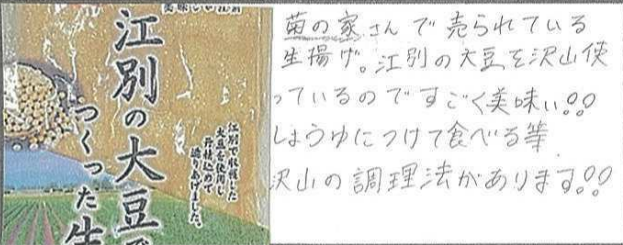 江別の大豆で
つくった生
江別で収穫した
大豆を使用し
丹精込めて
揚げました。
菊の家さんで売られている
生揚げ。江別の大豆を沢山使
っているのですごく美味い!!
しょうゆにつけて食べる等
沢山の調理法があります!!